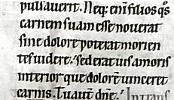 putauerit. Neq; eni͂ filios q͂s
carnem suam esse nouerat
sine dolore poterat morien
tes uidere. Sed erat uis amoris
interior que dolore͂ uinceret
carnis. Tuaut͂